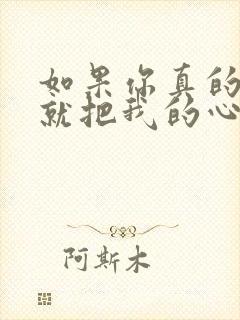 如果你真的
就把我的心
阿斯木